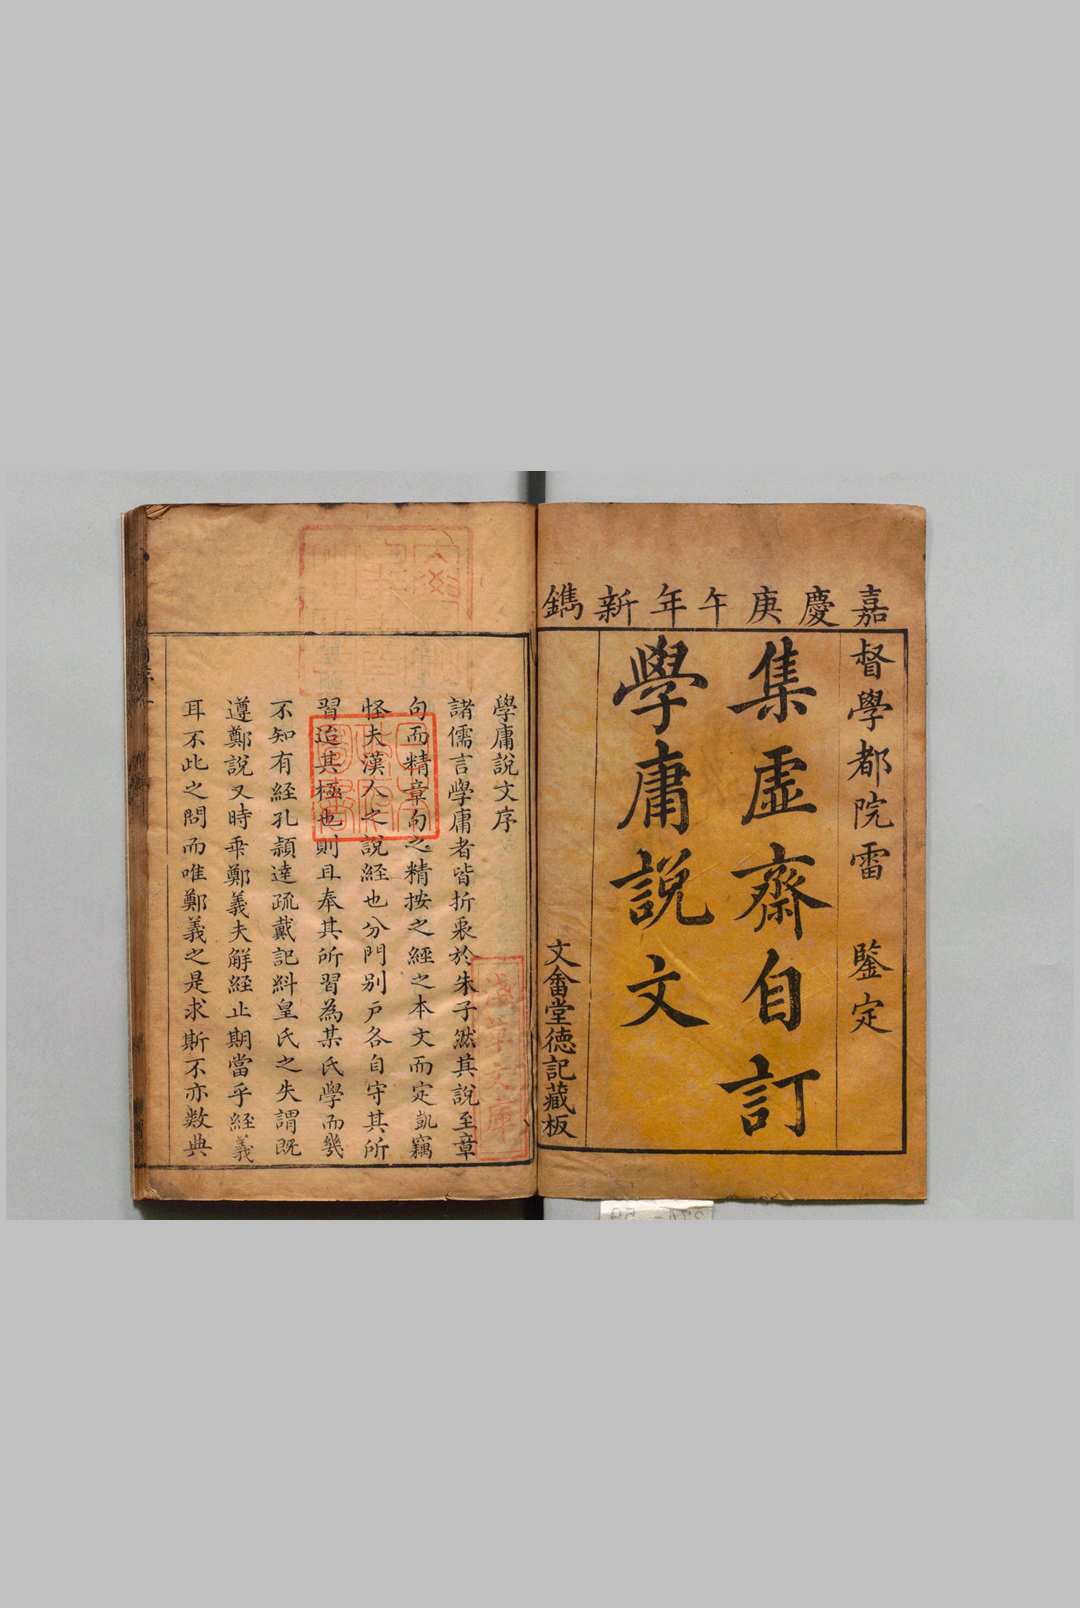 嘉慶庚午年新鐫
督學都院雷 鑒定
集虛齋自訂
學庸說文
文畬堂德記藏板
學庸說文序
諸儒言學庸者皆折衷於朱子然其說至章
句而精章句之精按之經之本文而定凱竊
怪夫漢人之說経也分門別戸各自守其所
習迨其極也則且奉其所習為某氏學而幾
不知有経孔頴達疏戴記糾皇氏之失謂既
遵鄭說又時乖鄭義夫解經止期當乎経義
耳不此之問而唯鄭義之是求斯不亦数典
淺草文庫